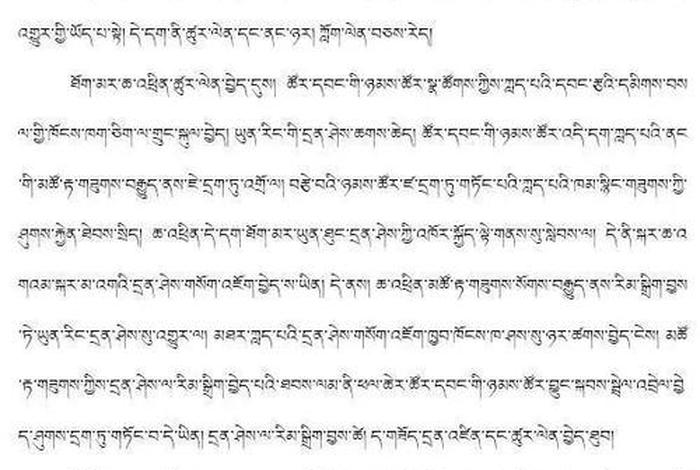 འགྱུར་གྱི་ཡོད་པ་སྟེ། དེ་དག་ནི་ཚུར་ལེན་དང་ནང་ཉར། ཀློག་ལེན་བཅས་རེད།
ཐོག་མར་ཆ་འཕྲིན་ཚུར་ལེན་བྱེད་དུས། ཚོར་དབང་གི་ཉམས་ཚོར་སྣ་ཚོགས་ཀྱིས་ཀླད་པའི་དབང་རྩའི་དམིགས་བས
ལ་གྱི་ཁོངས་ཁག་ཅིག་ལ་གྲུང་སྐུལ་བྱེད། ཡུན་རིང་གི་དྲན་ཤེས་ཆགས་ཆེད། ཚོར་དབང་གི་ཉམས་ཚོར་འདི་དག་ཀླད་པའི་ནང
་གི་མཚོ་རྟ་གཟུགས་བརྒྱུད་ནས་ཇེ་དྲག་ཏུ་འགྲོ་ལ། བརྩེ་བའི་ཉམས་ཚོར་ཛ་དྲག་ཏུ་གཏོང་པའི་ཀླད་པའི་ཁམ་སྙིང་གཟུགས་ཀྱི་
ཤུགས་རྐྱེན་ཐེབས་སྲིད། ཆ་འཕྲིན་དེ་དག་ཐོག་མར་ཡུན་ཐུང་དྲན་ཤེས་ཀྱི་འཁོར་སྐྱོད་ལྟེ་གནས་སུ་སླེབས་ལ། དེ་ནི་སྐར་ཆ་འ
གའམ་སྐར་མ་འགའི་དྲན་ཤེས་གསོག་འཇོག་བྱེད་ས་ཡིན། དེ་ནས། ཆ་འཕྲིན་མཚོ་རྟ་གཟུགས་སོགས་བརྒྱུད་ནས་རིམ་སྒྲིག་བྱས
ཏེ་ཡུན་རིང་དྲན་ཤེས་སུ་འགྱུར་ལ། མཐར་ཀླད་པའི་དྲན་ཤེས་གསོག་འཇོག་ཁྱབ་ཁོངས་ཁ་ཤས་སུ་ཉར་ཚགས་བྱེད་ངེས། མཚོ
་རྟ་གཟུགས་ཀྱིས་དྲན་ཤེས་ལ་རིམ་སྒྲིག་བྱེད་པའི་ཐབས་ལམ་ནི་ཕལ་ཆེར་ཚོར་དབང་གི་ཉམས་ཚོར་བྱུང་སྐབས་སྦྲེལ་འབྲེལ་བྱེ
ད་ཤུགས་དྲག་ཏུ་གཏོང་བ་དེ་ཡིན། དྲན་ཤེས་ལ་རིམ་སྒྲིག་བྱས་ཚེ། ད་གཟོད་དྲན་འཛིན་དང་ཚུར་ལེན་བྱེད་ཐུབ།